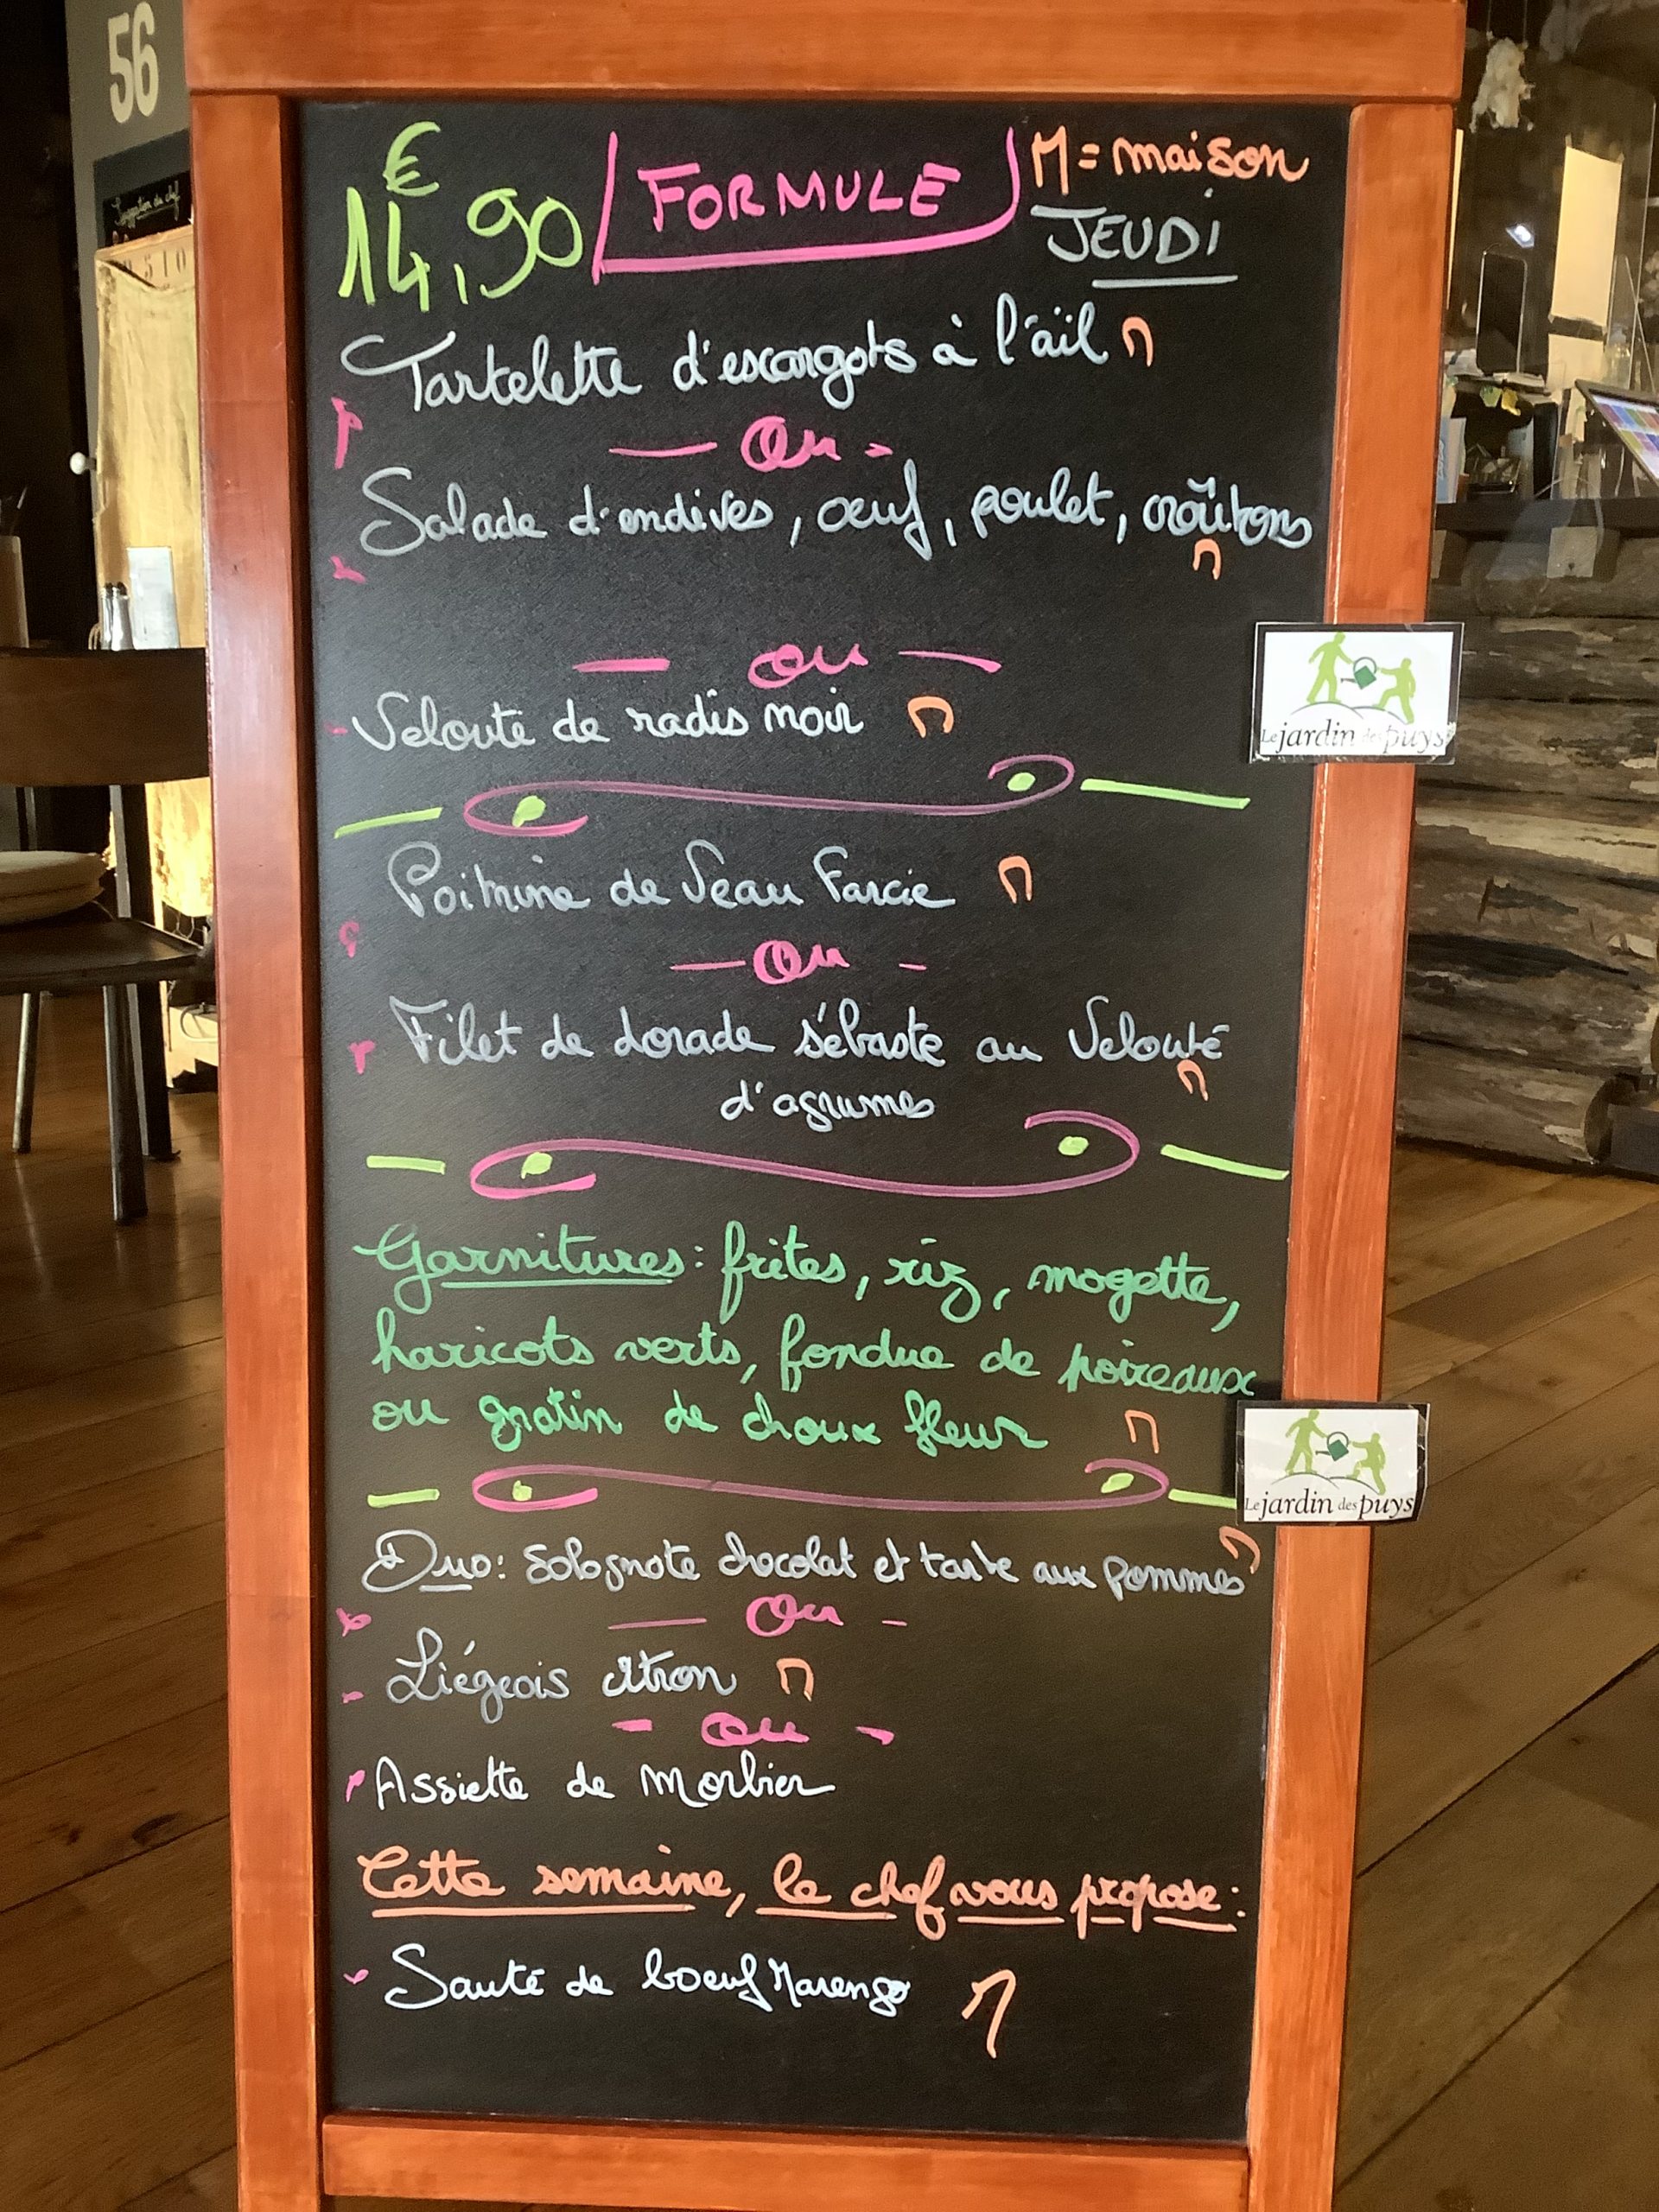 56
Suggestion du chef
€
14,90
FORMULE
M = maison
JEUDI
Tartelette d'escargots à l'aïl M
- Ou -
Salade d'endives, œuf, poulet, croûtons
M
- ou -
Velouté de radis noir M
Poitrine de Veau Farcie M
- Ou -
Filet de dorade sébaste au Velouté
d'agrumes M
Garnitures: frites, riz, mogette,
haricots verts, fondue de poireaux
ou gratin de choux fleur M
Duo: Solognote chocolat et tarte aux pommes M
- Ou -
Liégeois citron M
- ou -
Assiette de Morbier
Cette semaine, le chef vous propose:
- Sauté de boeuf Marengo M
Le jardin des puys
Le jardin des puys